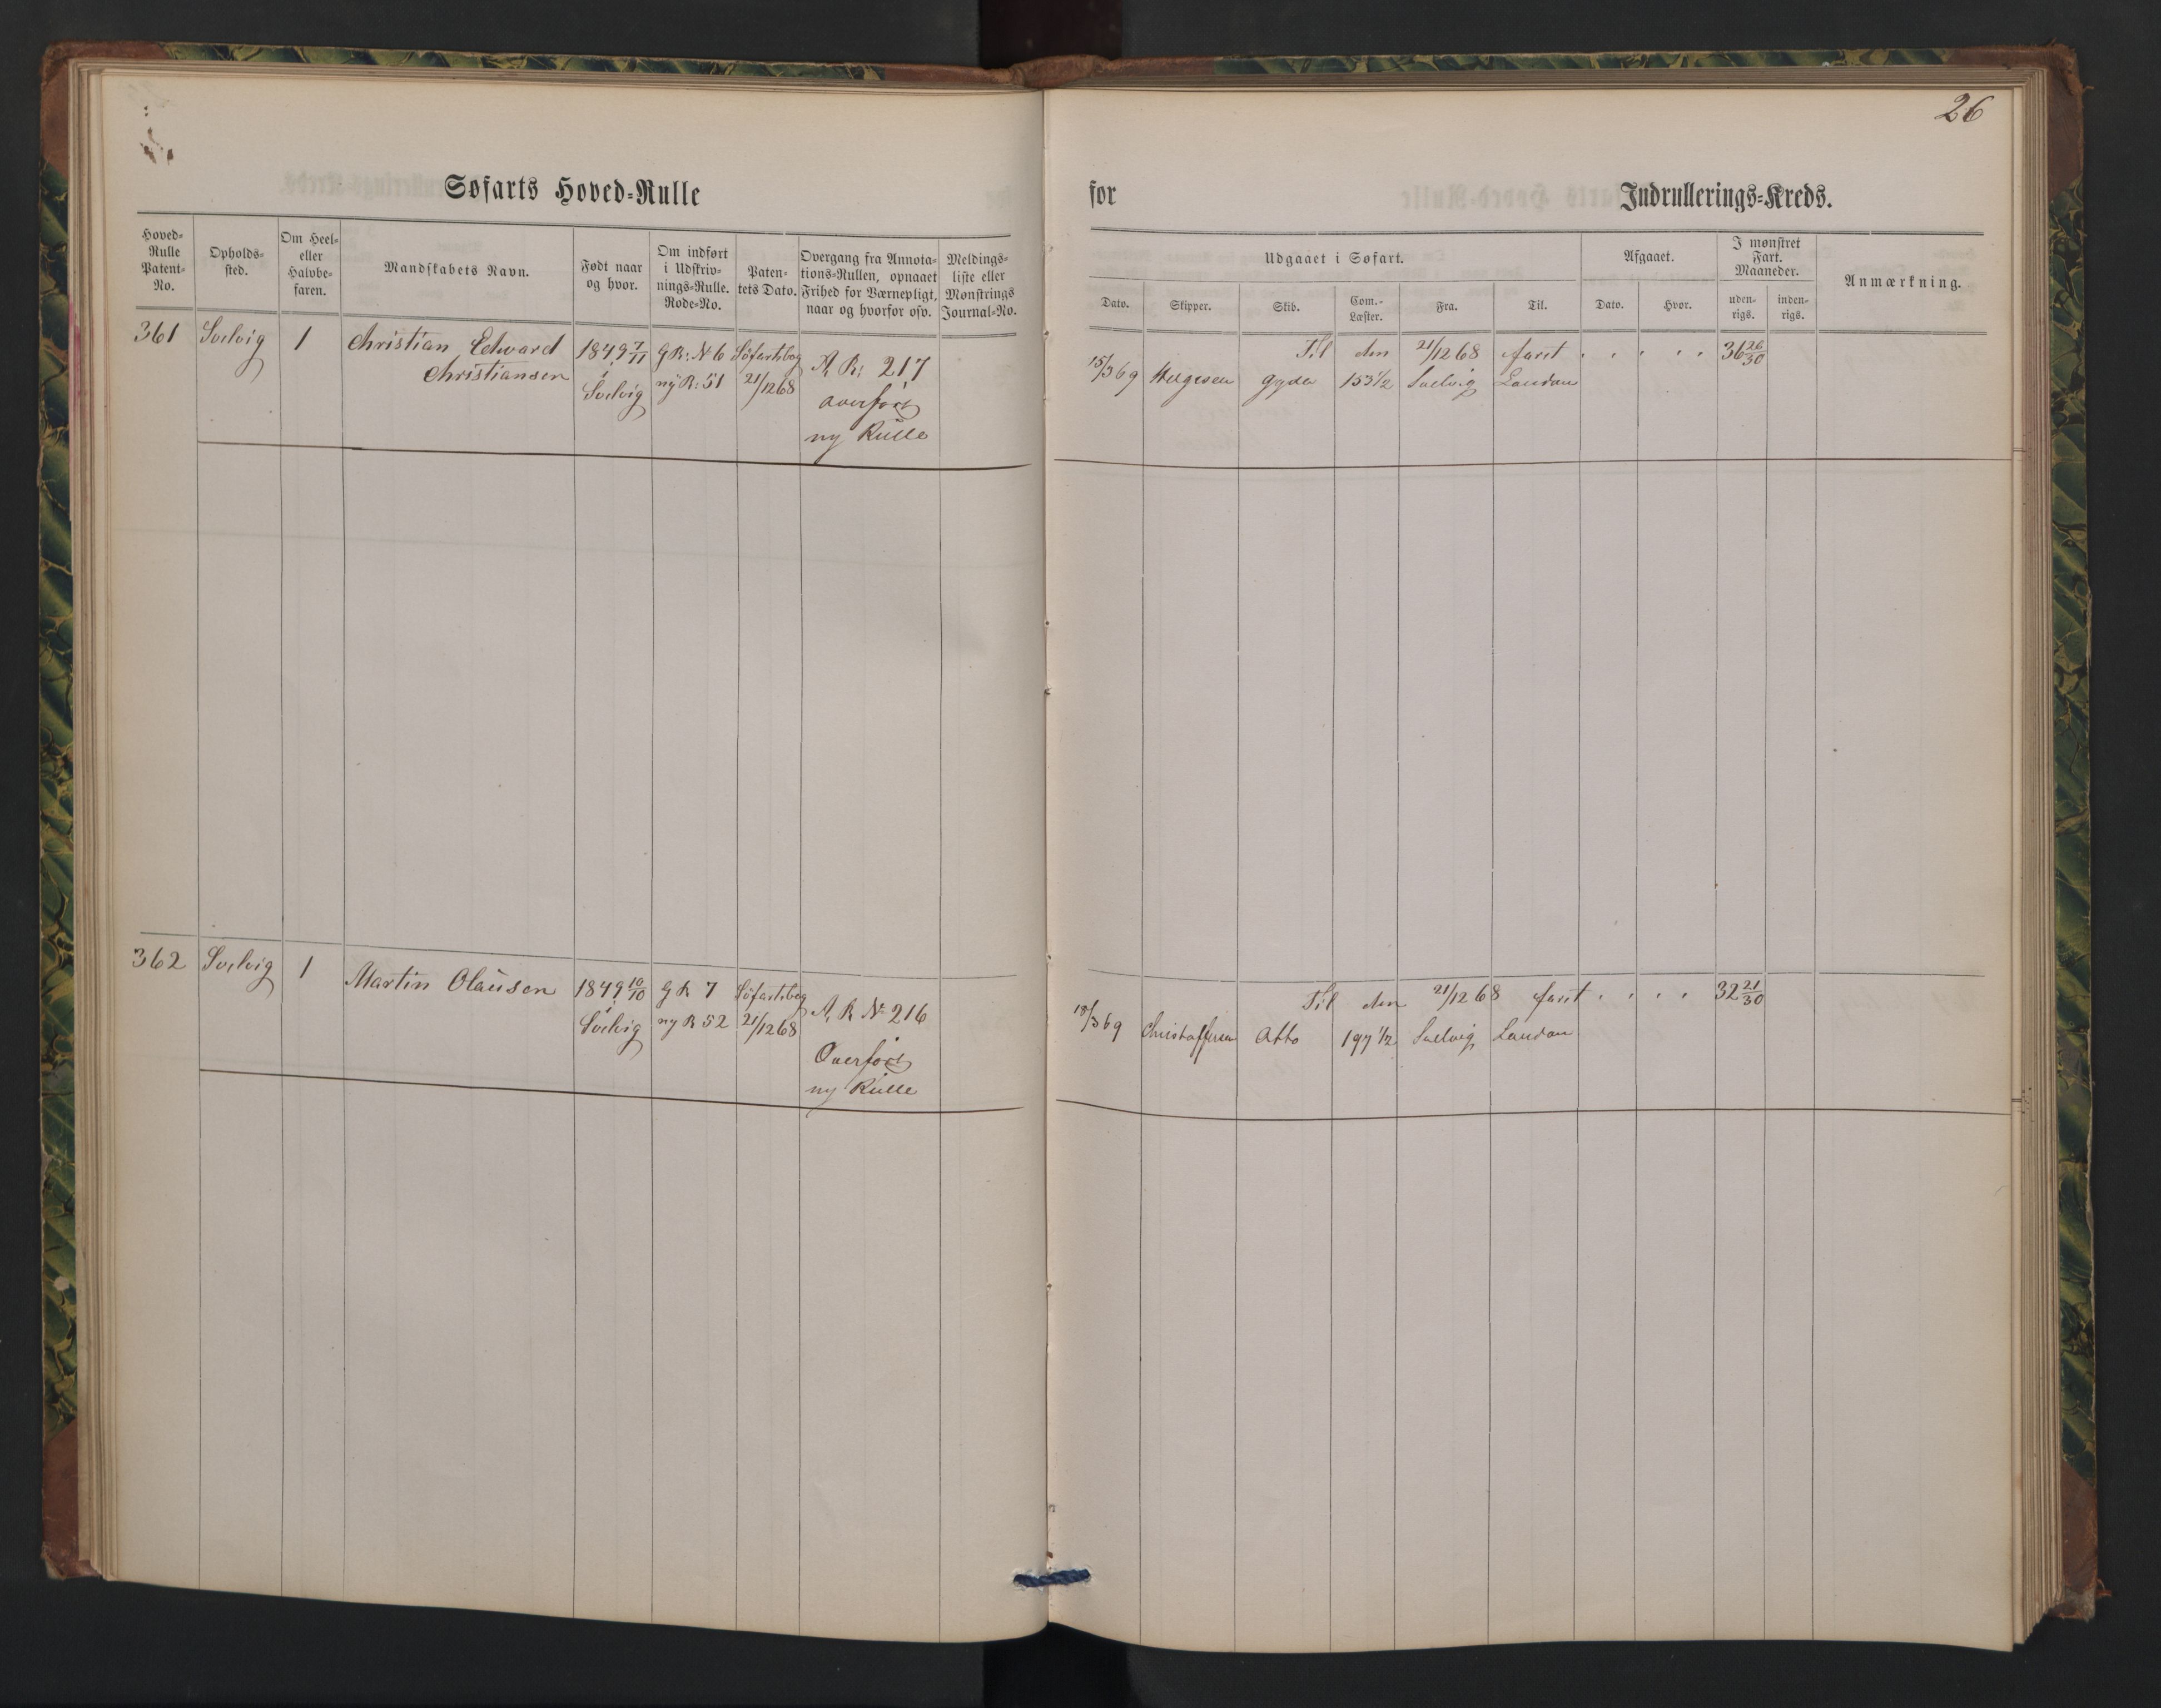 26
Søfarts Hoved-Rulle
for
Indrullerings-Kreds.
Hoved-
Rulle
Patent-
No.
Opholds-
sted.
Om Heel-
eller
Halvbe-
faren.
Mandskabets Navn.
Født naar
og hvor.
Om indført
i Udskriv-
nings-Rulle.
Rode-No.
Paten-
tets Dato.
Overgang fra Annota-
tions-Rullen, opnaaet
Frihed for Værnepligt,
naar og hvorfor osv.
Meldings-
liste eller
Mønstrings
Journal-No.
Udgaaet i Søfart.
Dato.
Skipper.
Skib.
Com.-
Læster.
Fra.
Til.
Afgaaet.
Dato.
Hvor.
I mønstret
Fart.
Maaneder.
uden-
rigs.
inden-
rigs.
Anmærkning.
361
Svelvig
1
Christian Edward
Christiansen
1849 7/11
i
Svelvig
G R: N 6
ny R: 51
Søfartsbog
21/12 68
A, R: 217
overført
ny Rulle
Til den 21/12 68 faret . . . . . 36 26/30
15/3 69 Helgesen Gyda 153 1/2 Svelvig London
362
Svelvig
1
Martin Olausen
1849 10/10
i
Svelvig
G R 7
ny R 52
Søfartsbog
21/12 68
A, R No 216
Overført
ny Rulle
Til den 21/12 68 faret . . . . 32 21/30
18/3 69 Christoffersen Otto 197 1/2 Svelvig London